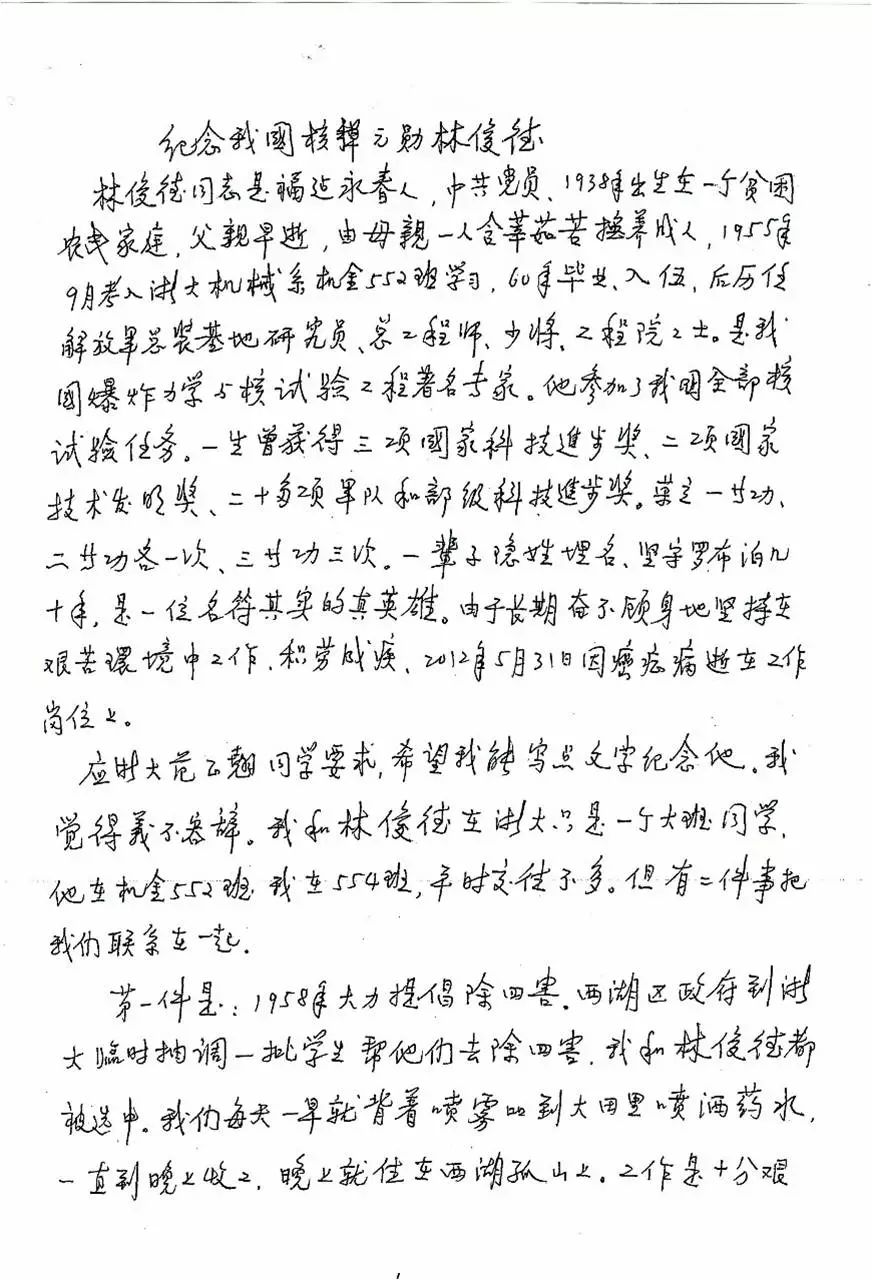 纪念我國核彈元勋林俊德
林俊德同志是福建永春人，中共党员、1938年出生在一个贫困
农民家庭，父親早逝，由母親一人含莘茹苦撫养成人，1955年
9月考入浙大机械系机金552班学习，60年毕业、入伍，后历任
解放军总装基地研究员、总工程师、少将、工程院士。是我
國爆炸力学与核试验工程著名专家。他参加了我國全部核
试验任务。一生曾获得三项國家科技進步奖、二项國家
技术发明奖、二十多项军队和部级科技進步奖。荣立一廿功、
二廿功各一次、三廿功三次。一辈子隐姓埋名、坚守罗布泊几
十年，是一位名符其实的真英雄。由于长期奋不顾身地坚持在
艰苦環境中工作，积劳成疾、2012年5月31日因癌症病逝在工作
岗位上。
应浙大范正翘同学要求，希望我能写点文字纪念他。我
觉得義不容辞。我和林俊德在浙大只是一个大班同学，
他在机金552班我在554班，平时交往不多。但有二件事把
我们联系在一起.
第一件是：1958年大力提倡除四害，西湖区政府到浙
大临时抽调一批学生帮他们去除四害，我和林俊德都
被选中。我们每天一早就背着喷雾口口到大田里喷洒药水，
一直到晚上收工，晚上就住在西湖孤山上。工作是十分艰
1